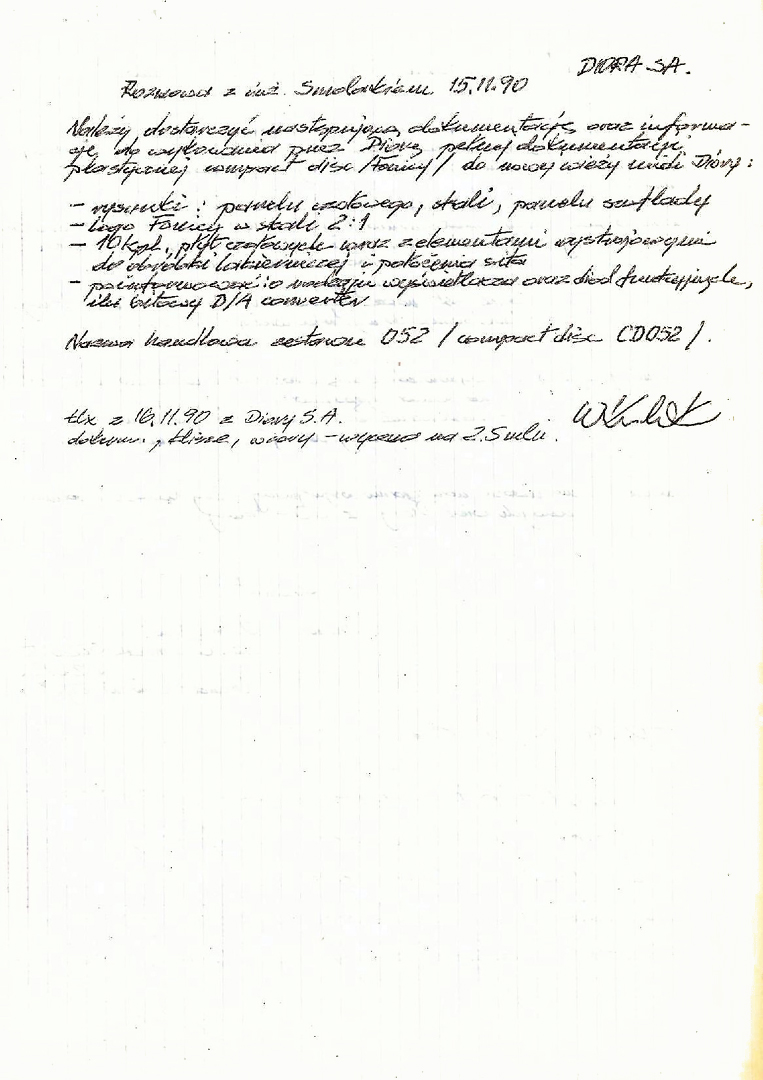 DIORA SA.
Rozmowa z inż. Smolarkiem 15.11.90
Należy dostarczyć następującą dokumentację oraz informa-
cje do wykonania przez Diorę pełnej dokumentacji
plastycznej compact disc /Fonicy/ do nowej wieży midi Diory:
- rysunki: panelu czołowego, skali, panelu szuflady
- logo Fonicy w skali 2:1
- 10 kpl. płyt czołowych wraz z elementami wystrojowymi
do obróbki lakierniczej i położenia sita
- poinformować: o rodzaju wyświetlacza oraz diod funkcyjnych,
ilu bitowy D/A converter
Nazwa handlowa zestawu 052 / compact disc CD052 /.
tlx z 16.11.90 z Diory S.A.
dokum., klisze, wzory - na